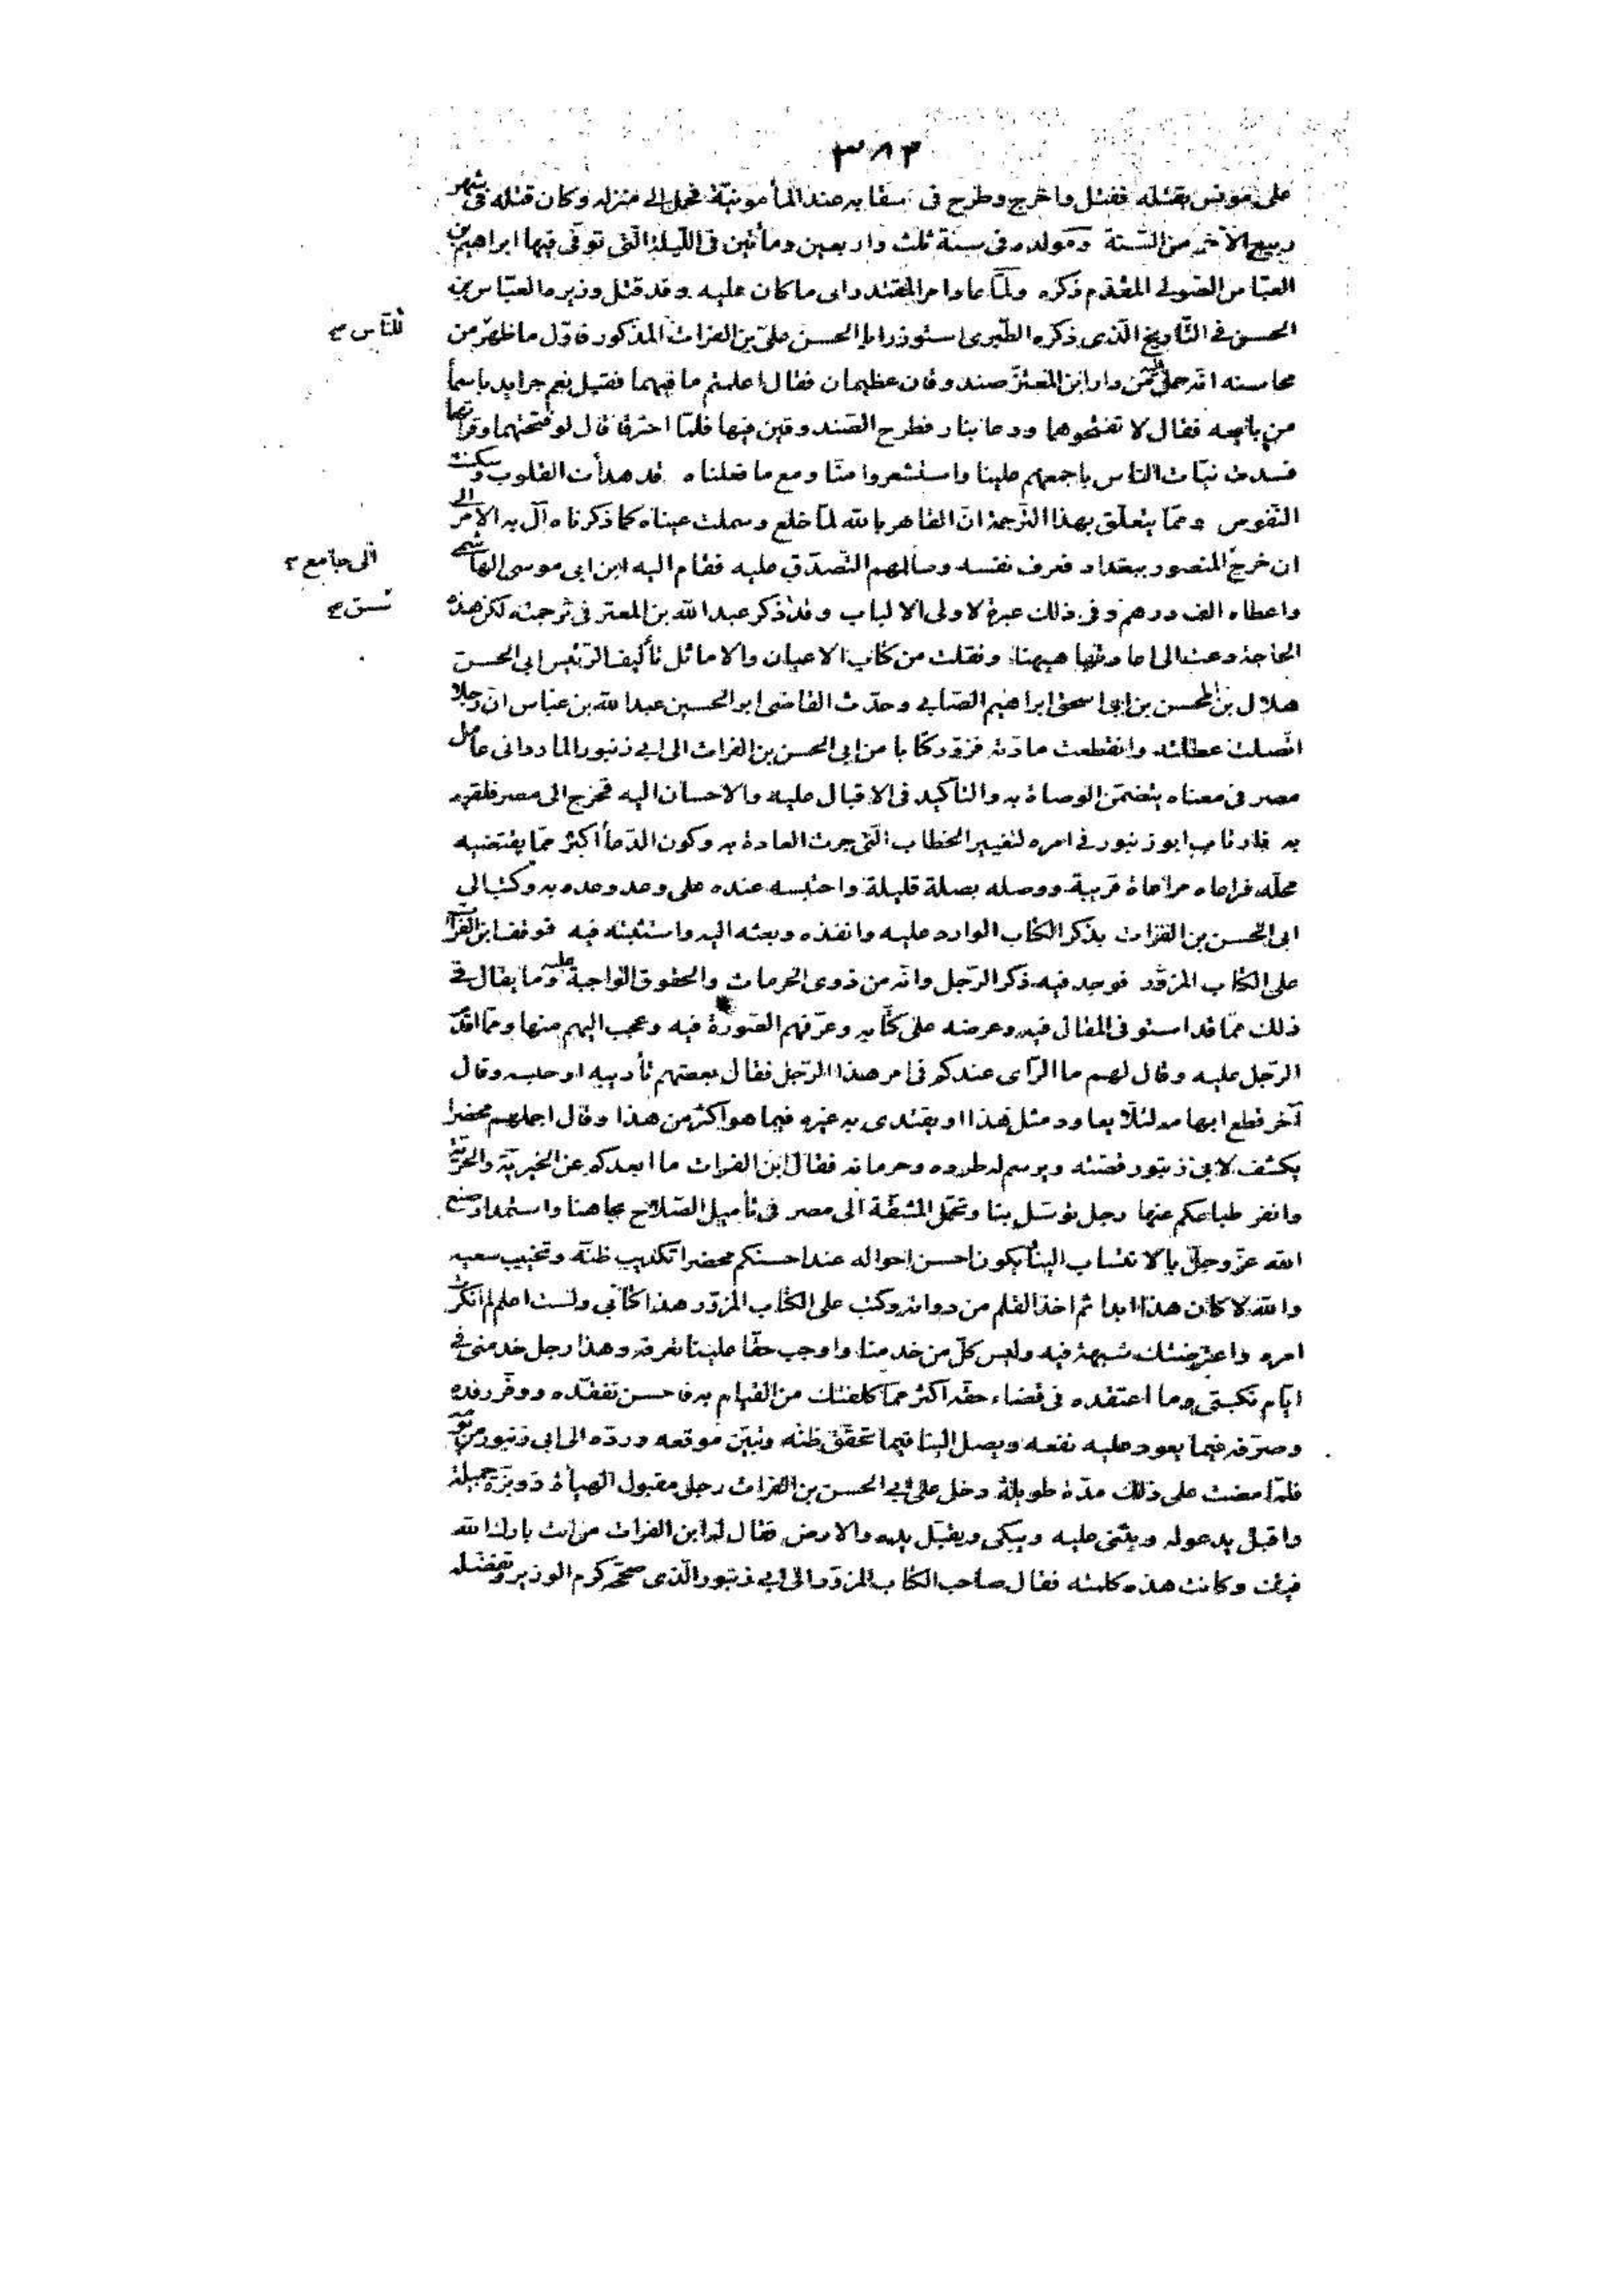 ٣٨٢
على مونس بقتله فقتل واخرج وطرح فى سقايه عند المأمونيّة فحمل الى منزله وكان قتله فى شهر
ربيع الآخر من السّنة ومولده فى سنة ثلث واربعين ومأتين فى اللّيلة الّتى توفّى فيها ابراهيم بن
العبّاس الصّولى المقدّم ذكره ولمّا عاد امر المقتدر الى ما كان عليه وقد قتل وزيره العبّاس بن
الحسن فى التّاريخ الّذى ذكره الطّبرى استوزر ابا الحسن علىّ بن الفرات المذكور فاوّل ما ظهر من
للنّاس
محاسنه انّه حمل اليه من دار ابن المعتزّ صندوقان عظيمان فقال اعلمتم ما فيهما فقيل نعم جرايد باسمأ
من بايعه فقال لا تفتحوهما ودعا بنار فطرح الصّندوقين فيها فلمّا احترقا قال لو فتحتهما وقرأتهما
فسدت نيّات النّاس باجمعهم علينا واستشعروا منّا ومع ما فعلناه قد هدأت القلوب وسكنت
النّفوس وممّا يتعلّق بهذا التّرجمة انّ القاهر بالله لمّا خلع وسملت عيناه كما ذكرناه آل به الامر الى
ان خرج المنصور ببغداد فعرف نفسه وسألهم التّصدّق عليه فقام اليه ابن ابى موسى الهاشمى
الى جامع
واعطاه الف درهم وفى ذلك عبرة لاولى الالباب وقد ذكر عبد الله بن المعتز فى ترجمته لكن هذه
الحاجة دعت الى اعادتها هيهنا ونقلت من كتاب الاعيان والاماثل تأليف الرّئيس ابى الحسن
هلال بن المحسن بن ابى اسحق ابراهيم الصّابى وحدّث القاضى ابو الحسين عبد الله بن عبّاس انّ رجلا
اتّصلت عطلته وانقطعت مادّته فزوّر كتابا من ابى الحسن بن الفرات الى ابى زنبور المادرانى عامل
مصر فى معناه يتضمّن الوصاة به والتأكيد فى الاقبال عليه والاحسان اليه فخرج الى مصر فلقيه
به فارتاب ابو زنبور فى امره لتغيير الخطاب الّتى جرت العادة به وكون الدّعأ اكثر ممّا يقتضيه
محلّه فراعاه مراعاة قريبة ووصله بصلة قليلة واحتبسه عنده على وعد وعده به وكتب الى
ابى الحسن بن الفرات يذكر الكتاب الوارد عليه وانفذه وبعثه اليه واستثبته فيه فوقف ابن الفرات
على الكتاب المزوّر فوجد فيه ذكر الرّجل وانّه من ذوى الحرمات والحقوق الواجبة عليه وما يقال فى
ذلك ممّا قد استوفى المقال فيه وعرضه على كتّابه وعرّفهم الصّورة فيه وعجب اليهم منها وممّا اقدم
الرّجل عليه وقال لهم ما الرّأى عندكم فى امر هذا الرّجل فقال بعضهم تأديبه او حبسه وقال
آخر قطع ابهامه لئلّا يعاود مثل هذا او يقتدى به غيره فيما هو اكثر من هذا وقال اجملهم محضرا
يكشف لابى زنبور قصّته ويرسم له طرده وحرمانه فقال ابن الفرات ما ابعدكم عن الخيريّة والحرّيّة
وانفر طباعكم عنها رجل توسّل بنا وتحمّل المشقّة الى مصر فى تأميل الصّلاح بجاهنا واستمداد صنع
الله عزّ وجلّ بالانتساب الينا يكون احسن احواله عند احسنكم محضرا تكذيب ظنّه وتخييب سعيه
والله لا كان هذا ابدا ثم اخذ القلم من دواته وكتب على الكتاب المزوّر هذا كتابى ولست اعلم لم انكرت
امره واعترضتك شبهة فيه وليس كلّ من خدمنا واوجب حقّا علينا تعرفه وهذا رجل خدمنى فى
ايّام نكبتى وما اعتقده فى قضاء حقّه اكثر ممّا كلفتك من القيام به فاحسن تفقّده ووفّر رفده
وصرّفه فيما يعود عليه نفعه ويصل الينا فيما تحقّق ظنّه وتبيّن موقعه وردّه الى ابى زنبور من يومه
فلمّا مضت على ذلك مدّة طويلة دخل على ابى الحسن بن الفرات رجل مقبول الهيأة ذو بزّة جميلة
واقبل يدعو له ويثنى عليه ويبكى ويقبّل يده والارض فقال له ابن الفرات من انت بارك الله
فيك وكانت هذه كلمته فقال صاحب الكتاب المزوّر الى ابى زنبور الّذى صحّحه كرم الوزير وتفضّله